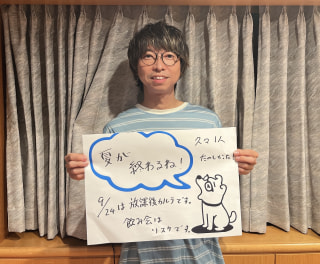 夏が
終わるね!
スマ1人
たのしかった!
9/24は 放課後カルテです。
飲み会は
リスケです。